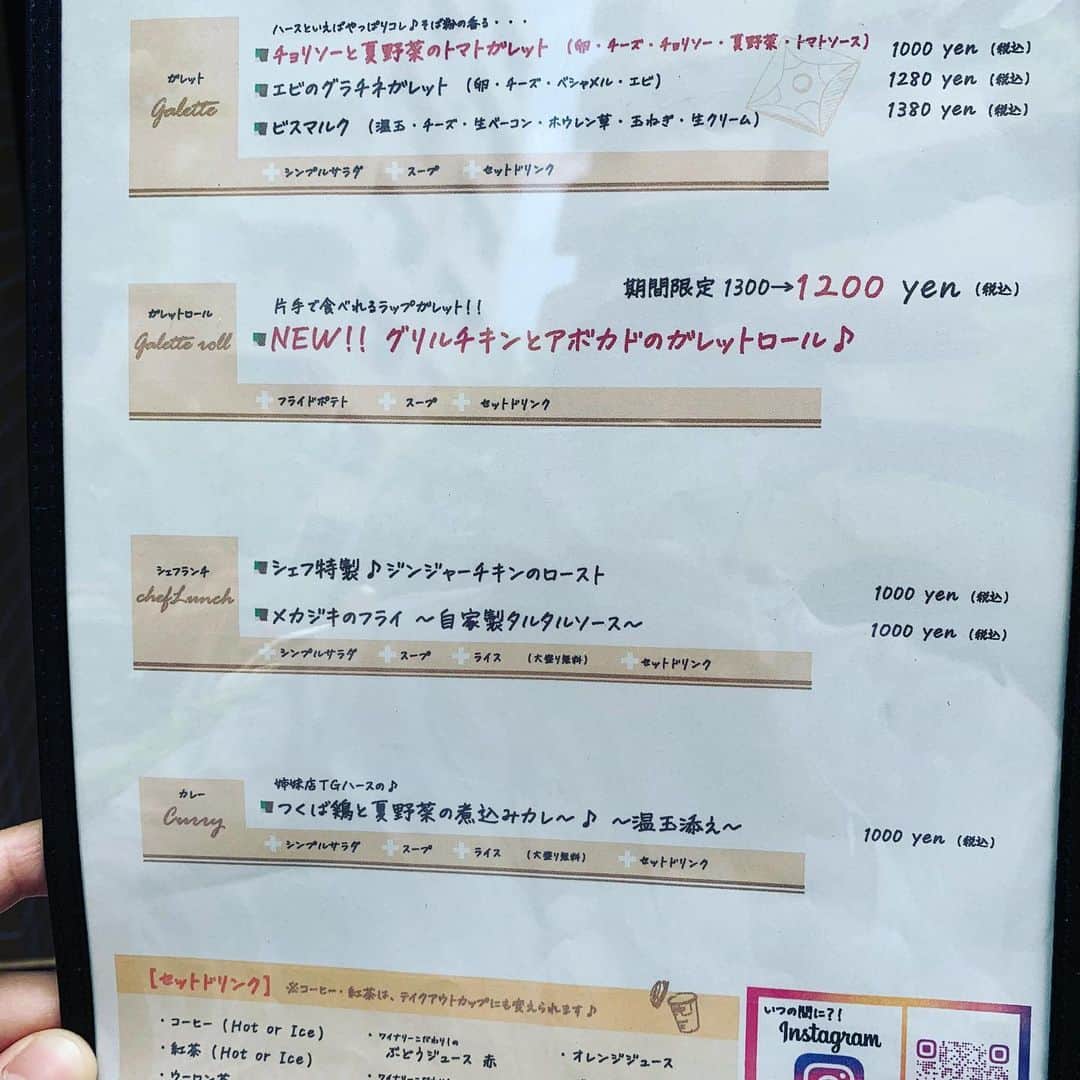 ハースといえばやっぱりコレ♪そば粉の香る・・・
チョリソーと夏野菜のトマトガレット (卵・チーズ・チョリソー・夏野菜・トマトソース) 1000 yen (税込)
ガレット
Galette
エビのグラチネガレット (卵・チーズ・ベシャメル・エビ) 1280 yen (税込)
ビスマルク (温玉・チーズ・生ベーコン・ホウレン草・玉ねぎ・生クリーム) 1380 yen (税込)
+シンプルサラダ +スープ +セットドリンク
期間限定 1300→1200 yen (税込)
片手で食べれるラップガレット!!
ガレットロール
Galette roll
NEW!! グリルチキンとアボカドのガレットロール♪
+フライドポテト +スープ +セットドリンク
シェフランチ
chefLunch
シェフ特製♪ジンジャーチキンのロースト 1000 yen (税込)
メカジキのフライ ~自家製タルタルソース~ 1000 yen (税込)
+シンプルサラダ +スープ +ライス (大盛り無料) +セットドリンク
姉妹店TGハースの♪
カレー
Curry
つくば鶏と夏野菜の煮込みカレ~♪ ~温玉添え~ 1000 yen (税込)
+シンプルサラダ +スープ +ライス (大盛り無料) +セットドリンク
【セットドリンク】 ※コーヒー・紅茶は、テイクアウトカップにも変えられます♪
・コーヒー (Hot or Ice)
・紅茶 (Hot or Ice)
・ウーロン茶
・ワイナリーこだわりの
ぶどうジュース 赤
・ワイナリーこだわりの
・オレンジジュース
いつの間に?!
Instagram